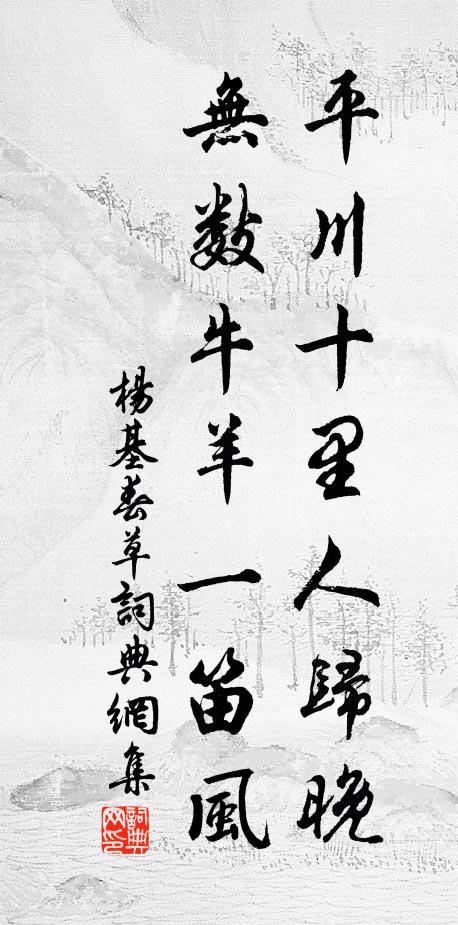 平川十里人歸晚
無數牛羊一笛風
楊基春草詞典網集
詞典
網印